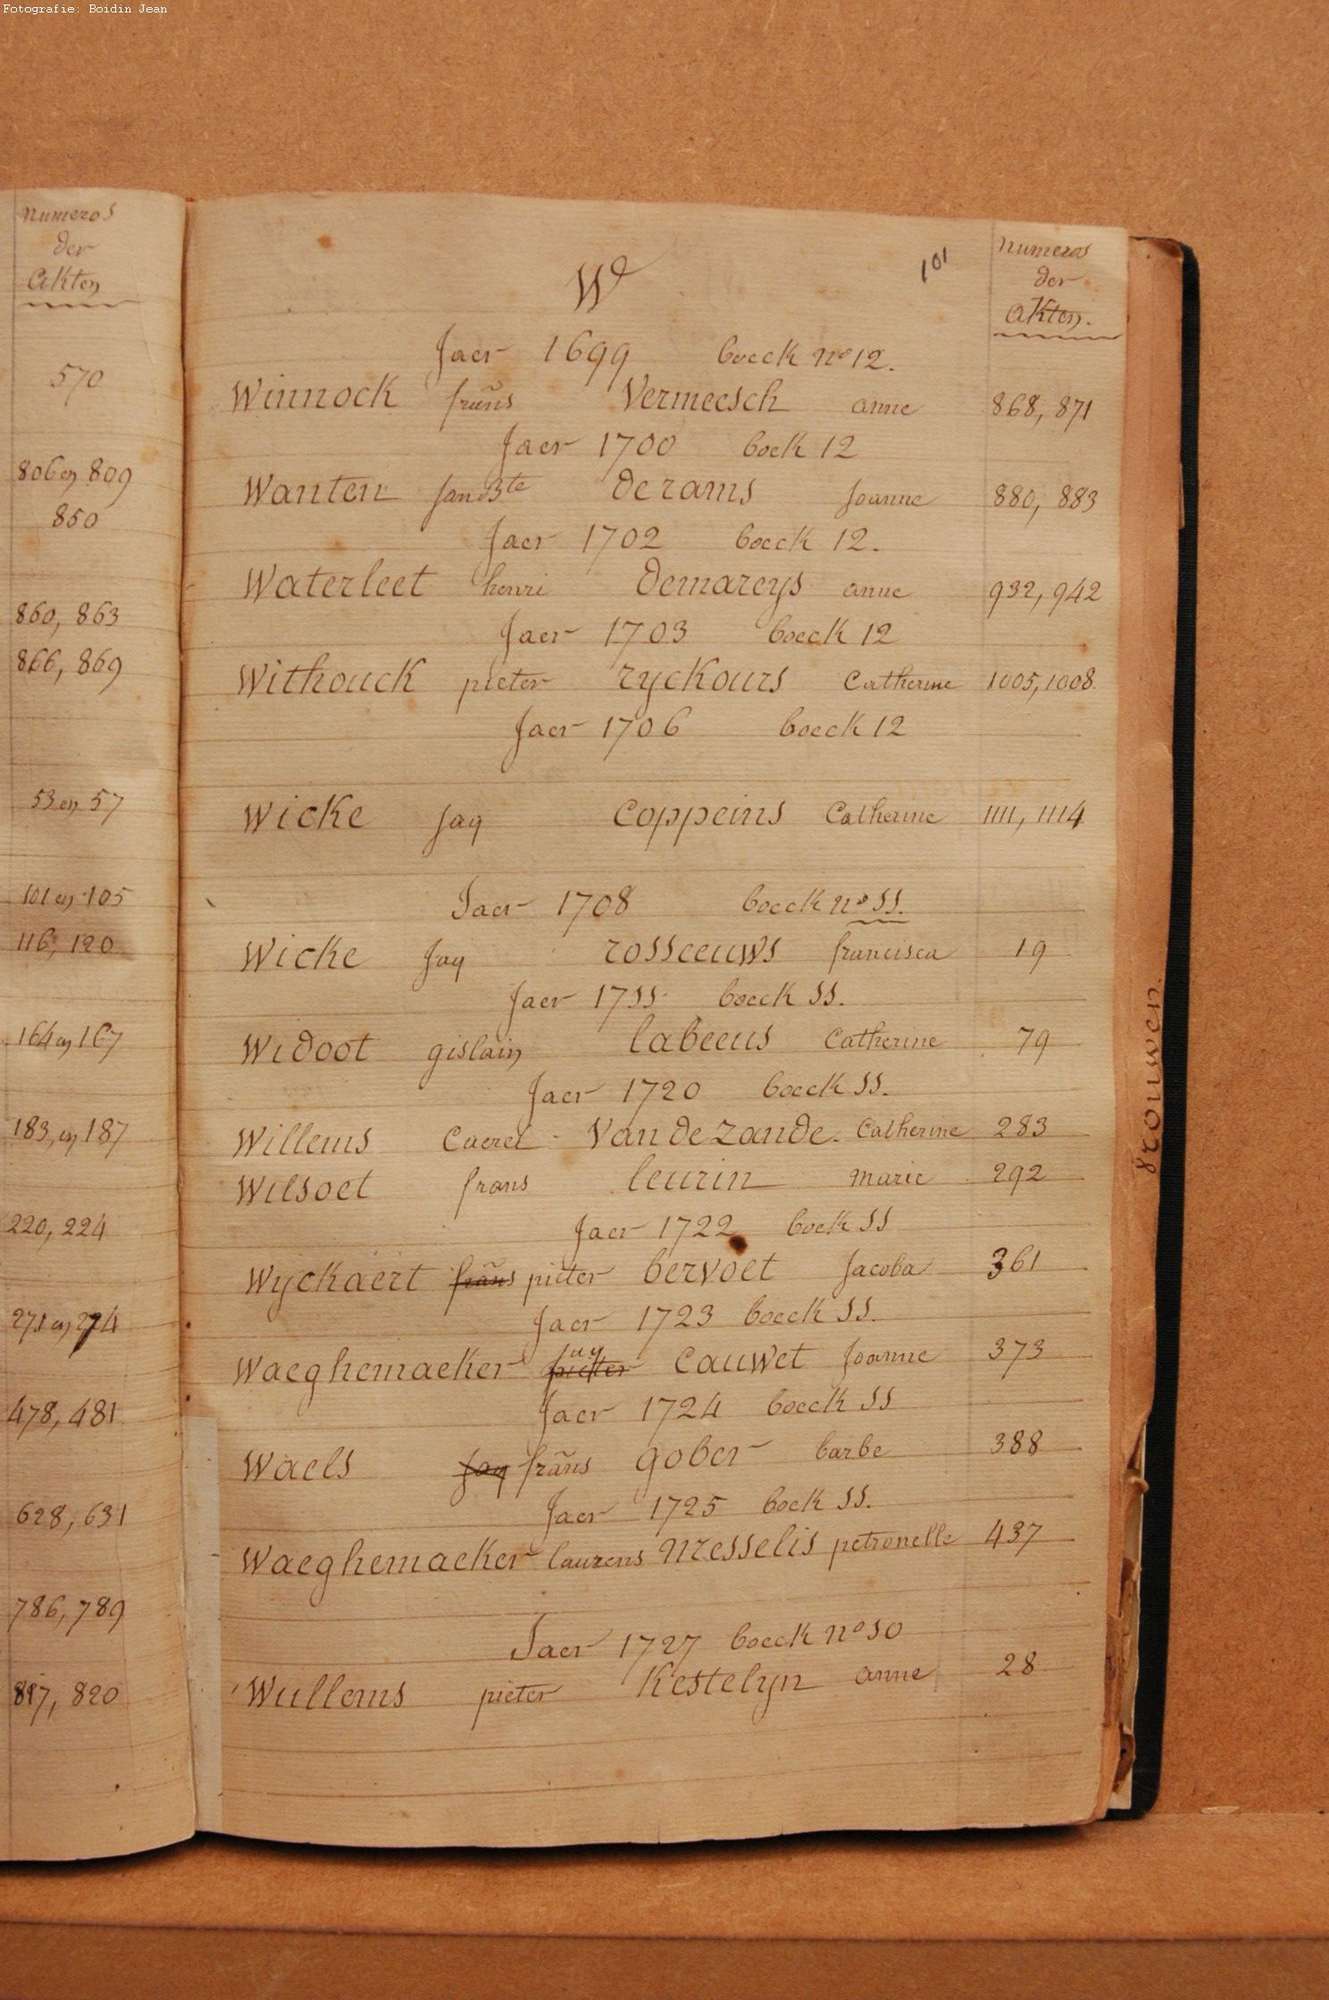 Fotografie: Boidin Jean
numeros
der
Akten
570
806 en 809
850
860, 863
866, 869
53 en 57
101 en 105
116, 120
164 en 167
183, en 187
220, 224
271 en 274
478, 481
628, 631
786, 789
817, 820
101
W
numeros
der
Akten.
Jaer 1699 boeck no 12.
Winnock frans Vermeesch anne 868, 871
Jaer 1700 boek 12
Wanten Jan Bte Derams Joanne 880, 883
Jaer 1702 boeck 12.
Waterleet henri Demareys anne 932, 942
Jaer 1703 boeck 12
Withouck pieter ryckours Catherine 1005, 1008
Jaer 1706 boeck 12
Wicke Jaq Coppeins Catherine 1111, 1114
Jaer 1708 boeck no 11.
Wicke Jaq rosseeuws francisca 19
Jaer 1711 boeck 11.
Widoot gislain labeeus Catherine 79
Jaer 1720 boeck 11.
Willems Caerel Van de Zande. Catherine 283
Wilsoet frans leurin marie 292
Jaer 1722 boek 11
Wyckaert frans pieter bervoet Jacoba 361
Jaer 1723 boeck 11.
Waeghemaeker pieter Jaq Cauwet Joanne 373
Jaer 1724 boeck 11
Waels Jaq frans gober barbe 388
Jaer 1725 boek 11.
Waeghemaeker laurens Messelis petronelle 437
Jaer 1727 boeck no 10
Wullems pieter Kestelyn anne 28
trouwen